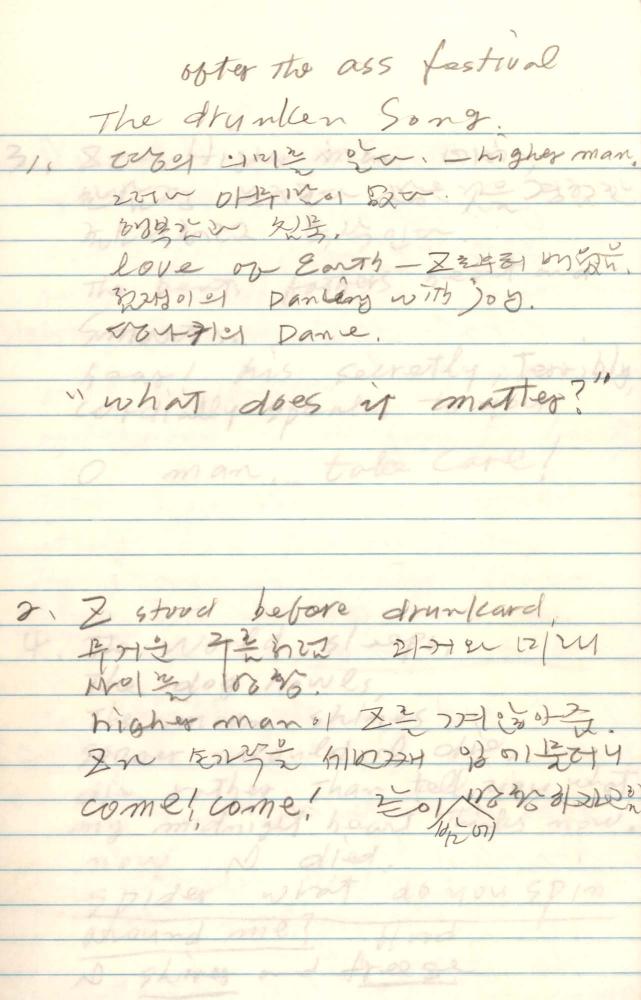 after the ass festival
The drunken Song.
1. 땅의 의미를 알다. — higher man.
그러나 아무 말이 없다.
행복감과 침묵.
love of Earth — Z로부터 배웠음.
점쟁이의 Dancing with joy.
당나귀의 Dance.
"what does it matter?"
2. Z stood before drunkard.
무거운 구름처럼 과거와 미래
사이를 방황.
higher man이 Z를 껴안아줌.
Z가 손가락을 세번째 입에 물더니
come! come! 밤에 방황하자고함